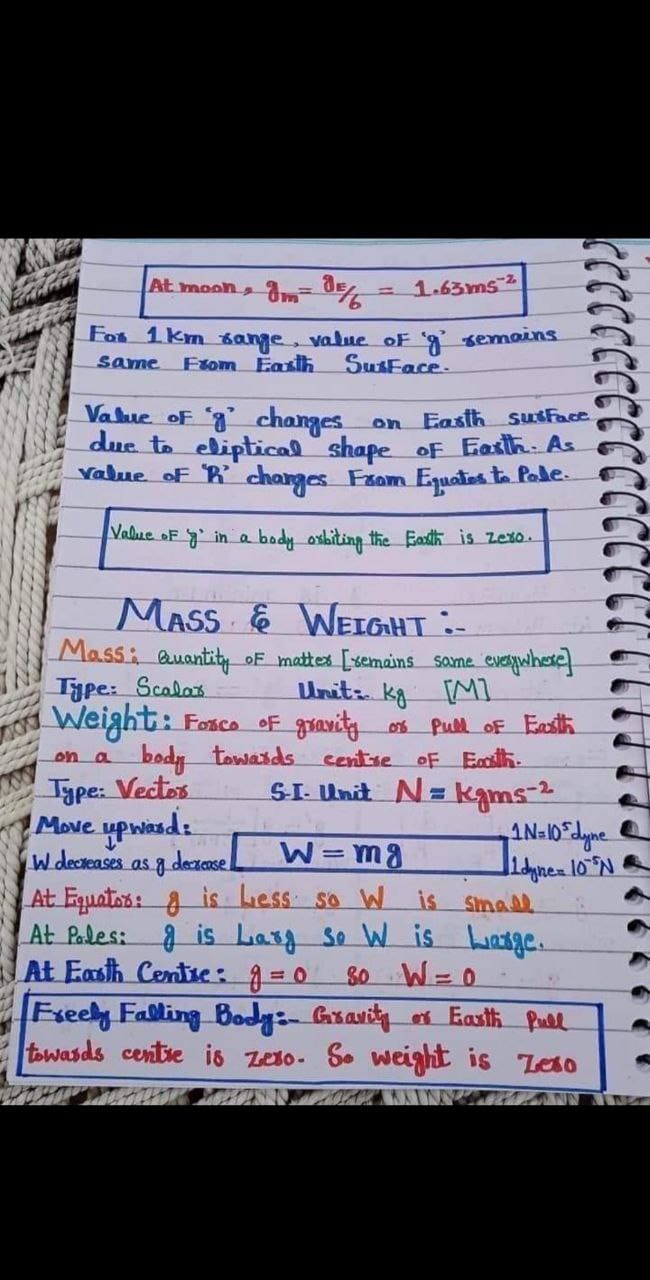 At moon, gm = gE/6 = 1.63ms⁻²
For 1 Km range, value of 'g' remains
same From Earth Surface.
Value of 'g' changes on Earth surface
due to eliptical shape of Earth. As
value of 'R' changes From Equator to Pole.
Value of 'g' in a body orbiting the Earth is zero.
MASS & WEIGHT :-
Mass: Quantity of matter [remains same everywhere]
Type: Scalar Unit:- kg [M]
Weight: Force of gravity or Pull of Earth
on a body towards centre of Earth.
Type: Vector S.I. Unit N = Kgms⁻²
Move upward:
↓
W decreases as g decrease
W = mg
1N=10⁵dyne
1dyne= 10⁻⁵N
At Equator: g is Less so W is small
At Poles: g is Larg so W is Large.
At Earth Centre: g = 0 so W = 0
Freely Falling Body:- Gravity or Earth Pull
towards centre is zero. So weight is zero